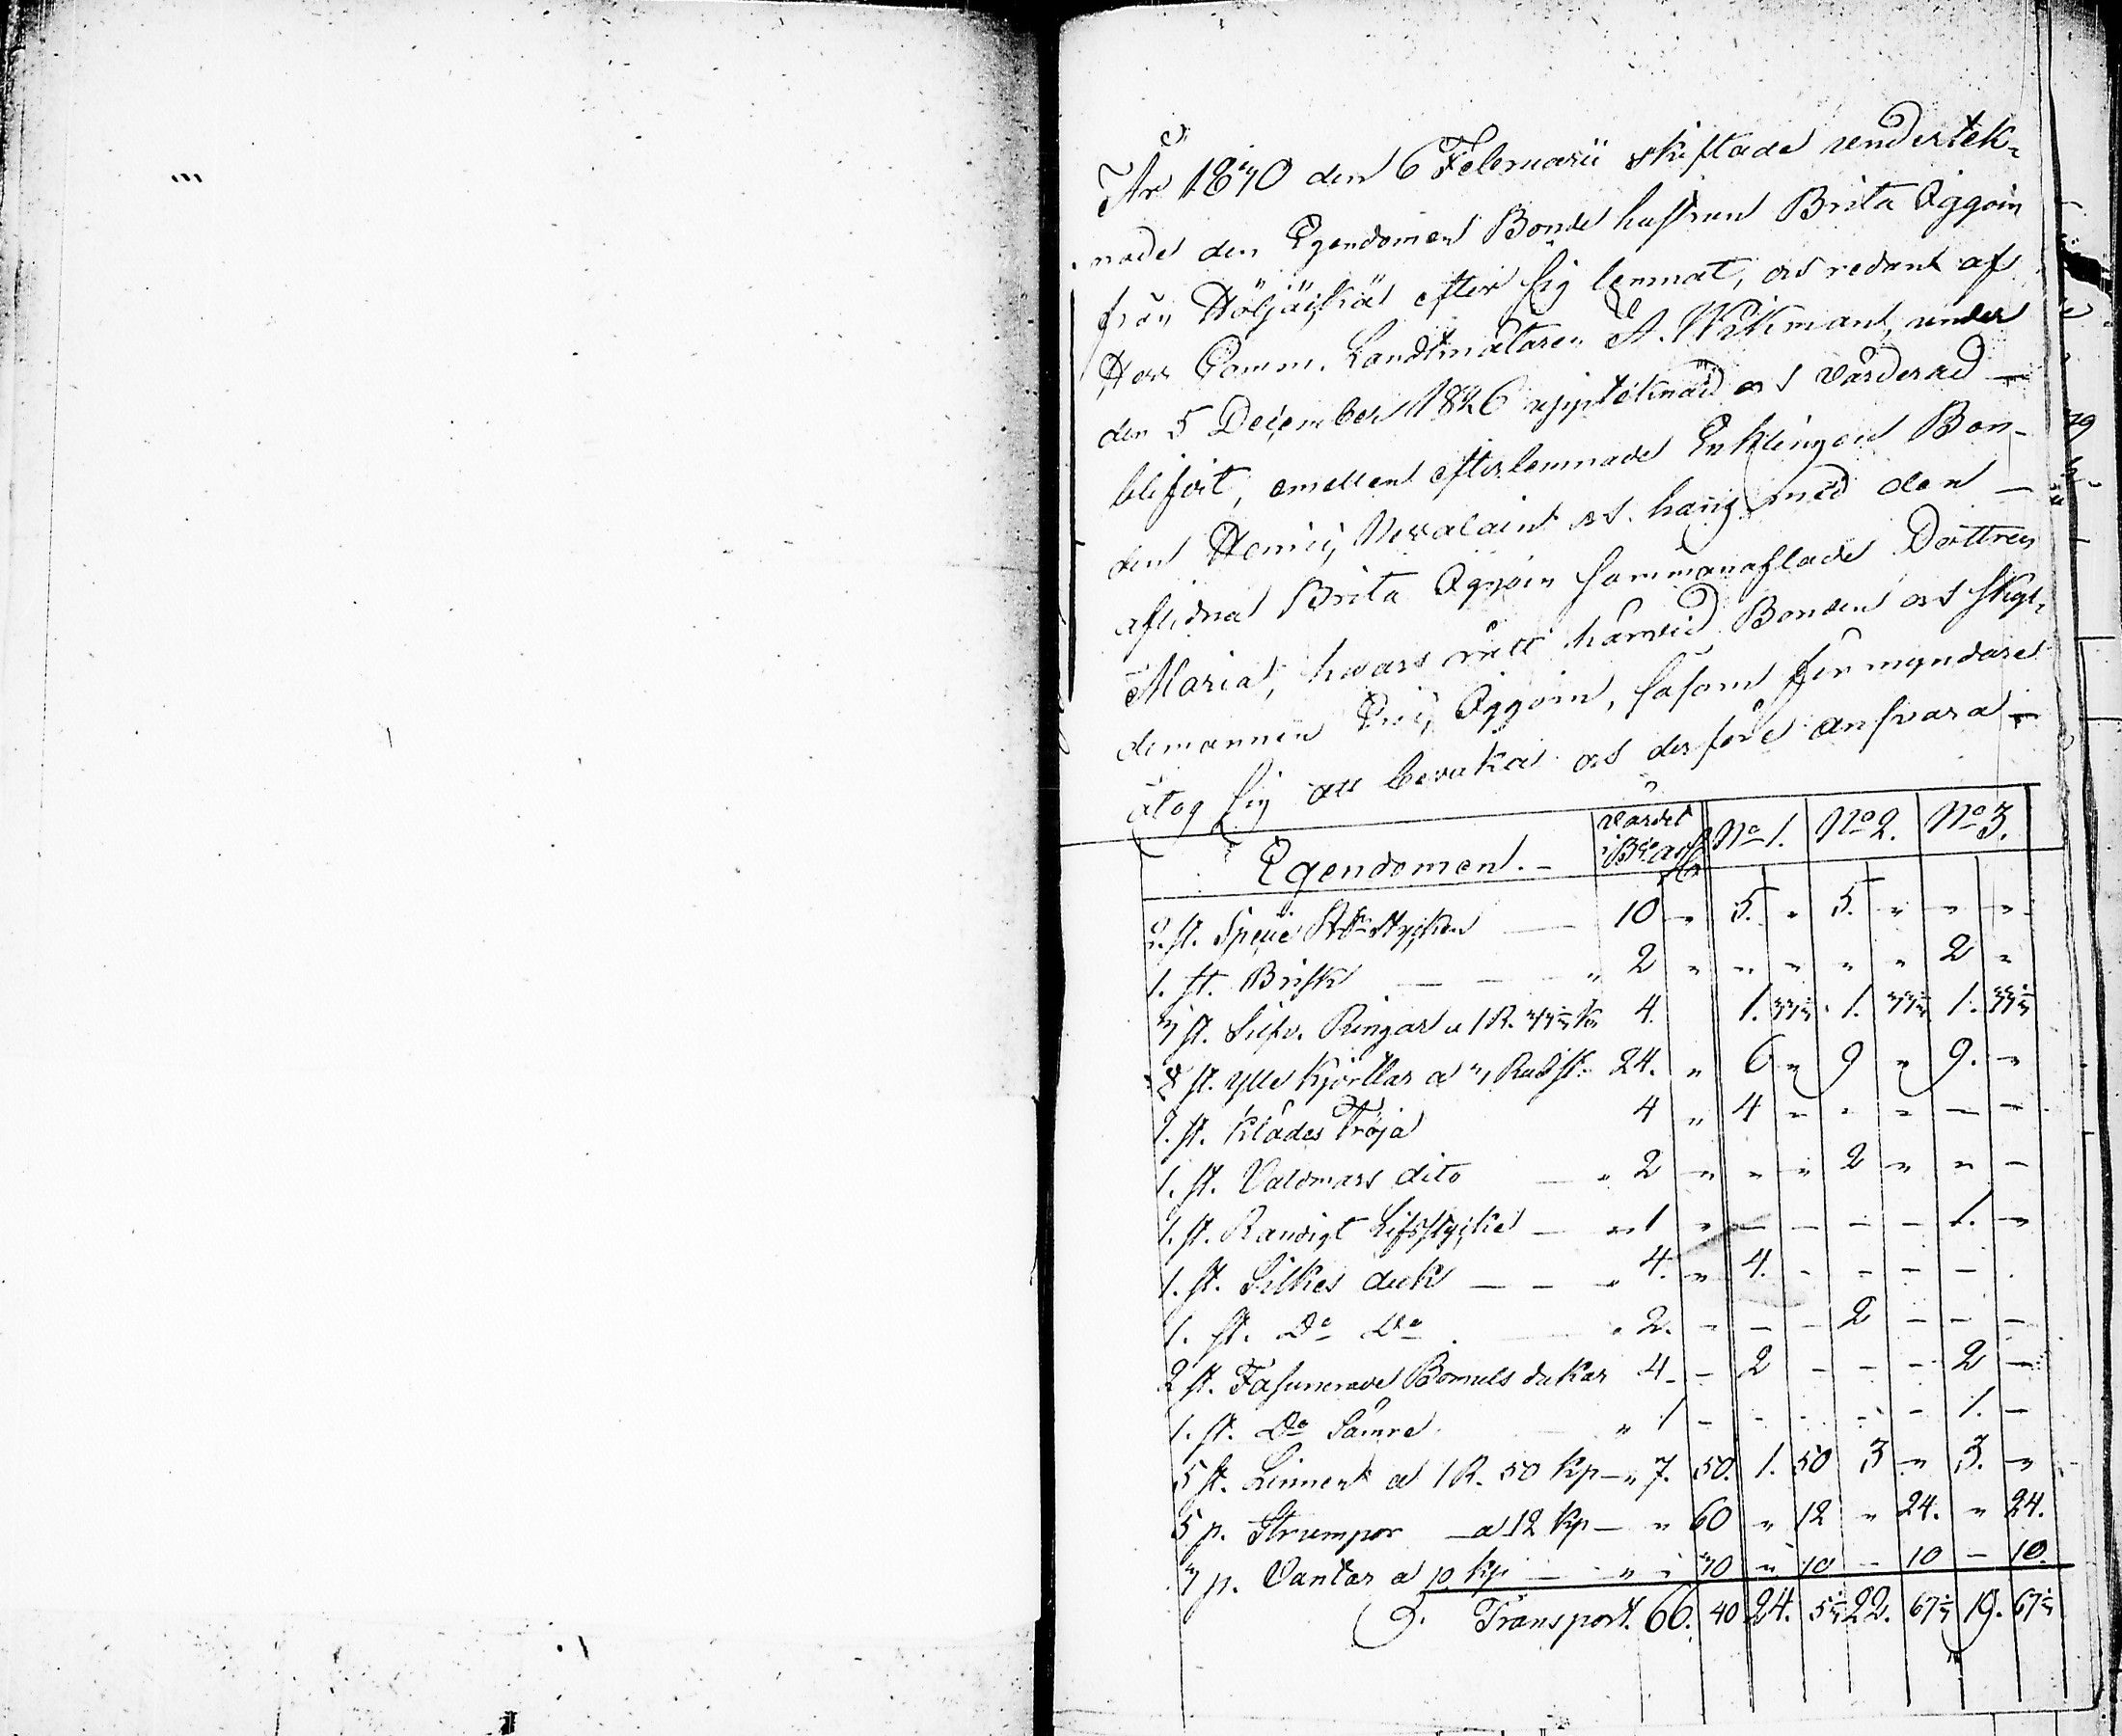 År 1830 den 6 Februarii skiftade undertek-
nade den Egendomen Bonde hustrun Brita Äggöin
från Höljäiskä efter sig lemnat, och redant af
Herr Comm. Landtmätaren A. Wikman, under
den 5 December 1826 upptéknad och värderad —
blifvit, emellan efterlemnade Enklingen Bon-
den Henric och hans med den —
aflidna Brita Äggöin sammanaflade Dottren
Maria, hwars rätt härwid Bonden och
demannen Eric Äggöin, såsom förmyndare
åtog sig att bevaka och derföre ansvara —
Egendomen. — Värdet i Bco Ass. Rbl No 1. No 2. No 3.
2. st. Specie Stycken — 10 „ 5. „ 5. „ „ „
1. st. Brisk — — „ 2 „ „ „ „ „ 2 „
3 st. Silfv. Ringar a 1 R. 33⅓ K 4. 1. 33⅓ 1. 33⅓ 1. 33⅓
8 st. Ylle Kjortlar a 3 Rub st. 24. „ 6 „ 9 „ 9. „
1. st. Klädes Tröja 4 „ 4 „ „ „ — —
1. st. Valdmars dito — „ 2 „ „ „ 2 „ „ —
1. st. Randigt Lifstycke — „ 1 „ — — — — 1. „
1. st. Silkes duk — — „ 4. „ 4. - - — —
1. st. Do Do — „ 2. — — — 2 — — —
2 st. Fasunerade Bomuls dukar 4 — 2 — — — 2 —
1. st. Do Sämre „ 1 — - - - — 1. —
5 st. Linnen a 1 R. 50 Kp — „ 7. 50. 1. 50 3 „ 3. „
5 p. Strumpor — a 12 Kp — „ 60 „ 12 „ 24. „ 24.
3 p. Vantar a 10 Kp — „ 30 „ 10 — 10 — 10.
Transport. 66. 40 24. 5⅓ 22. 67⅓ 19. 67⅓